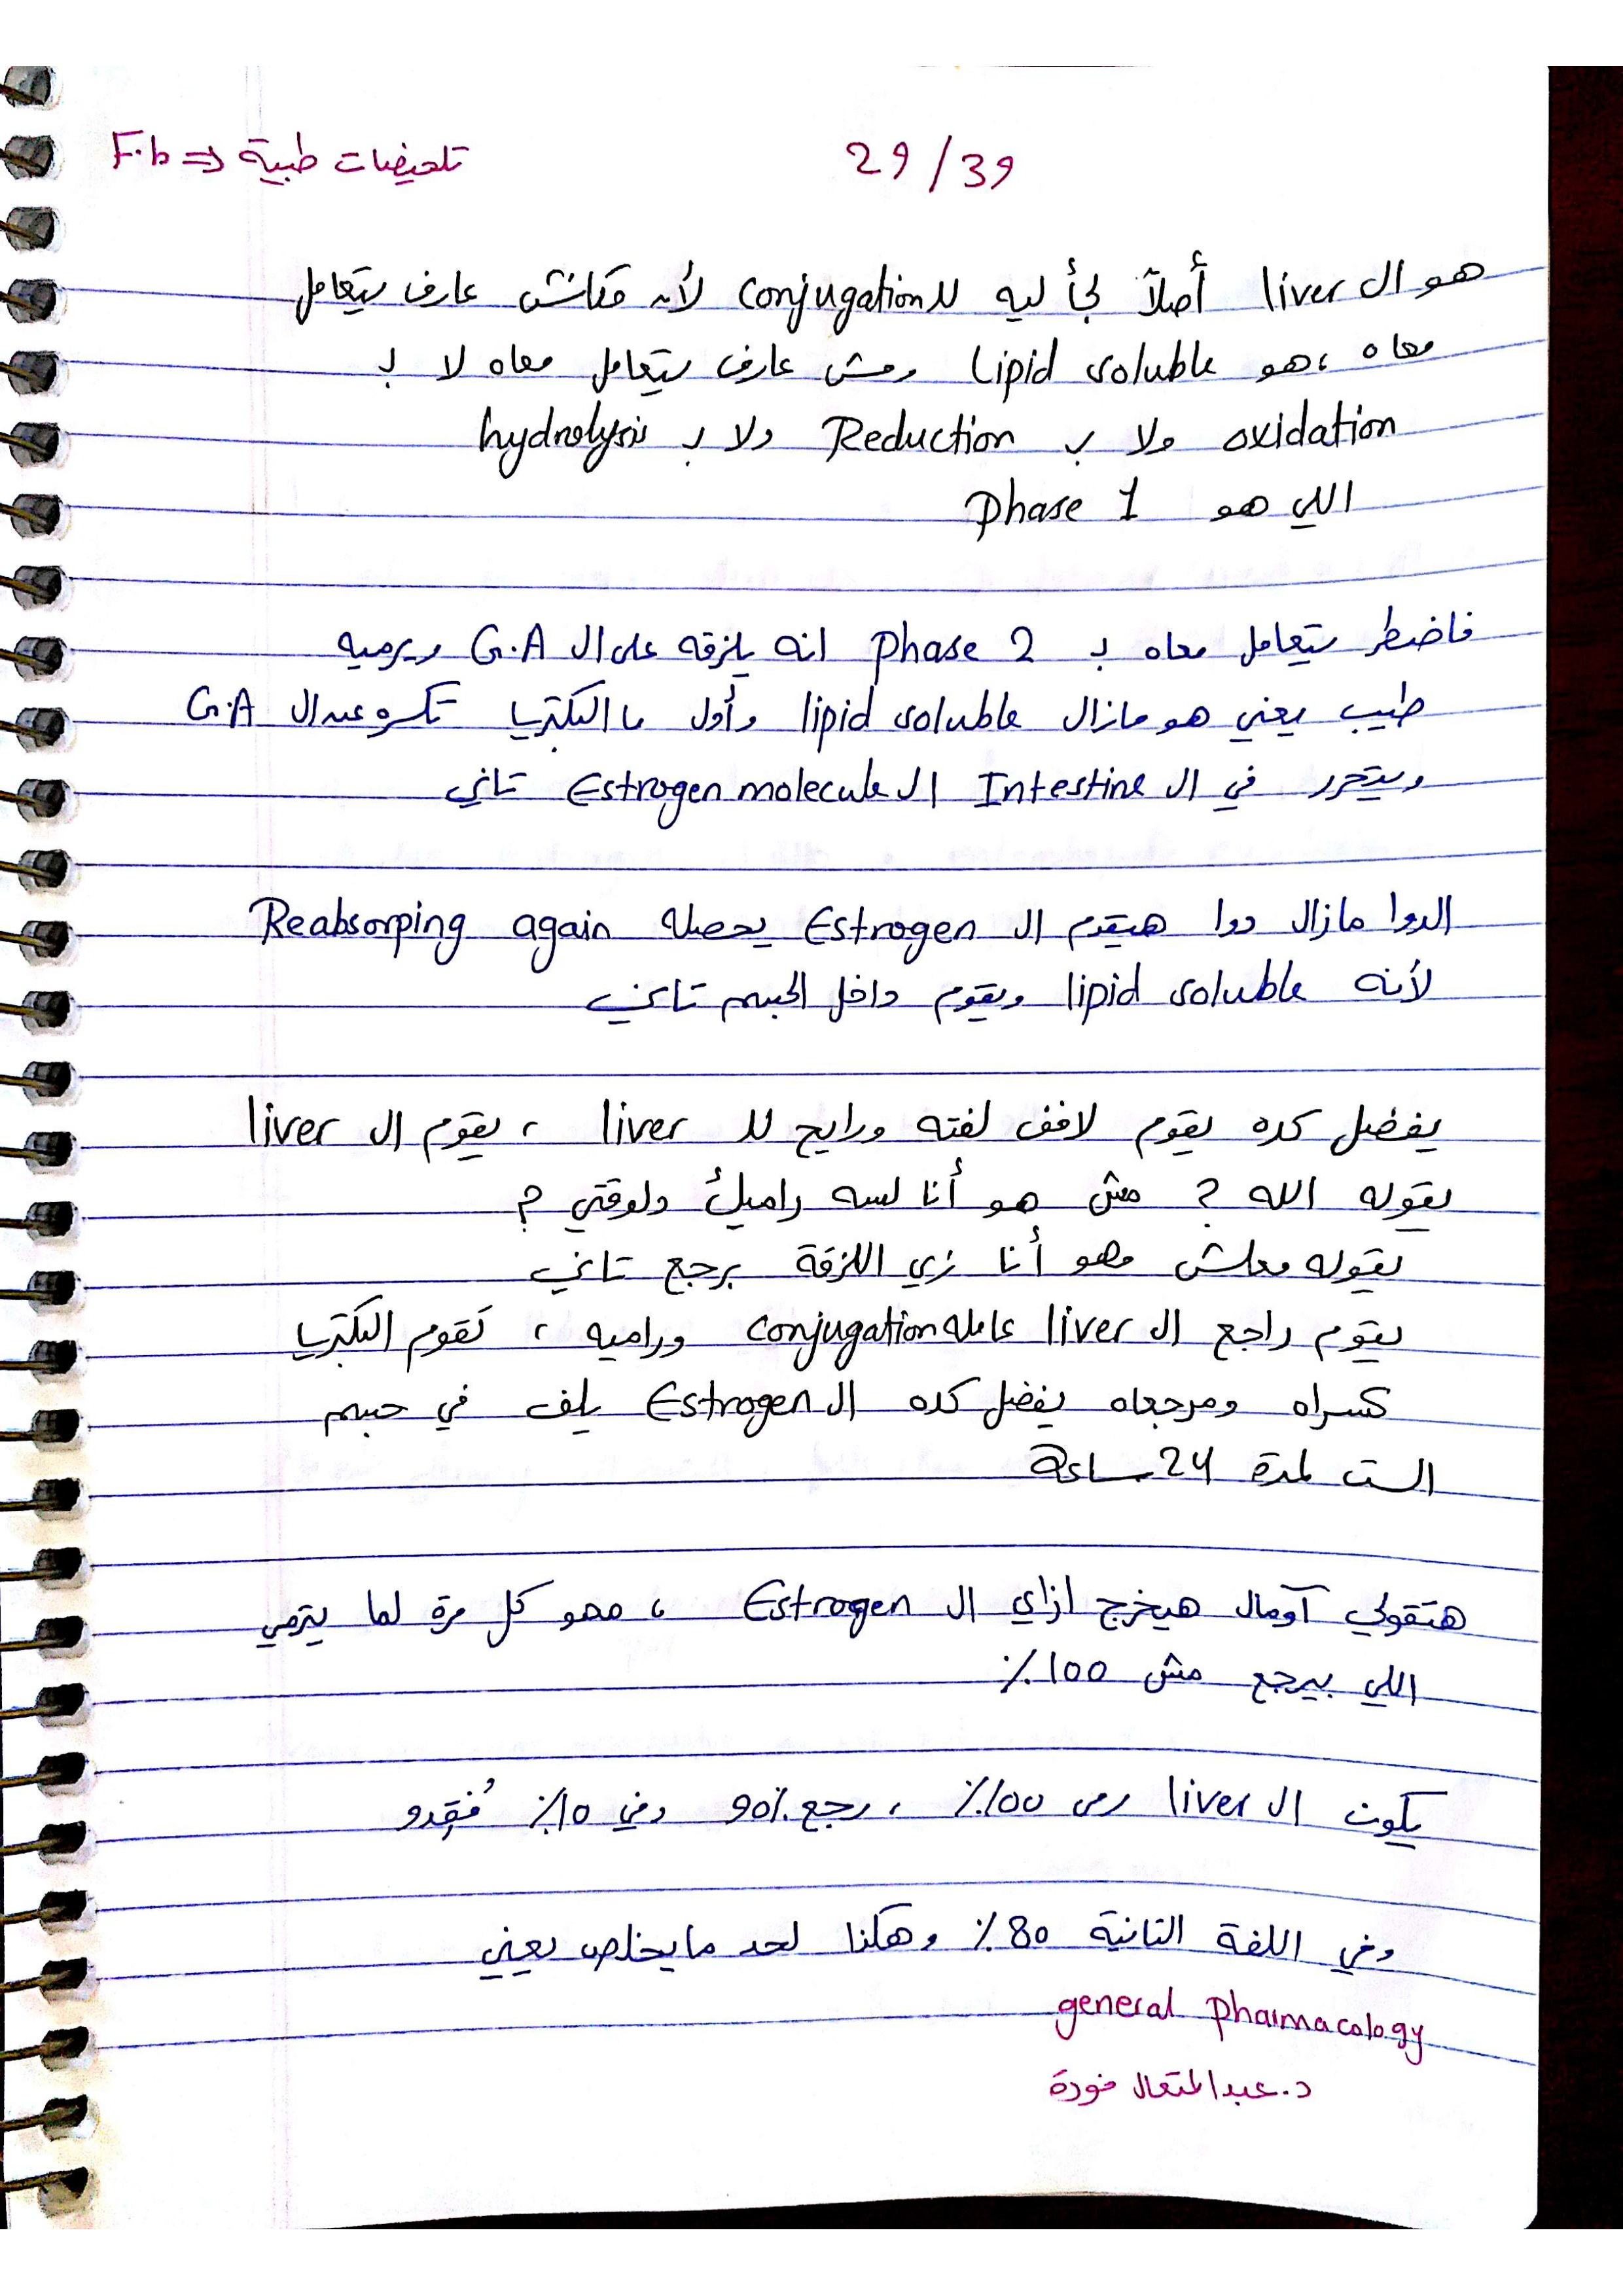 تلخيصات طبية ⇐ F.b
29/39
هو ال liver أصلاً لجأ ليه لل conjugation لأنه مكانش عارف يتعامل
معاه ، هو Lipid soluble ومش عارف يتعامل معاه لا ب
oxidation ولا ب Reduction ولا ب hydrolysis
اللي هو phase 1
فاضطر يتعامل معاه ب phase 2 انه يلزقه على ال G.A ويرميه
طيب يعني هو مازال lipid soluble وأول ما البكتريا تكسره عن ال G.A
ويتحرر في ال Intestine ال Estrogen molecule تاني
الدوا مازال دوا هيقوم ال Estrogen يحصله Reabsorping again
لأنه lipid soluble ويقوم داخل الجسم تاني
يفضل كده يقوم لافف لفته ورايح لل liver ، يقوم ال liver
يقوله الله ? مش هو أنا لسه راميك دلوقتي ?
يقوله معلش مهو أنا زي اللزقة برجع تاني
يقوم راجع ال liver عامله conjugation وراميه ، تقوم البكتريا
كسراه ومرجعاه يفضل كده ال Estrogen يلف في جسم
الست لمدة 24 ساعة
هتقولي آومال هيخرج ازاي ال Estrogen ، مهو كل مرة لما يترمي
اللي بيرجع مش 100٪
يكون ال liver رمى 100٪ ، رجع 90٪ وفي 10٪ فُقِدو
وفي اللفة التانية 80٪ وهكذا لحد ما يخلص يعني
general pharmacology
د. عبد المتعال فودة